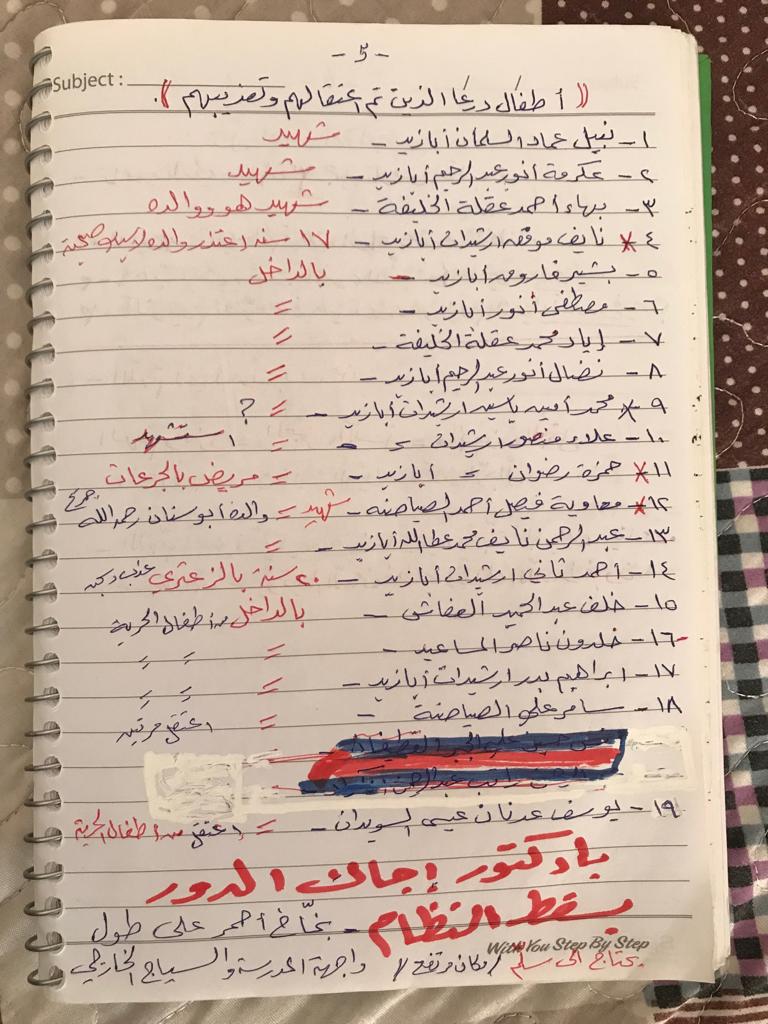 - 5 -
Subject :
(( أطفال درعا الذين تم اعتقالهم وتعذيبهم )).
١- نبيل عماد السلمان أبازيد - شهيد
٢- عكرمة أنور عبد الرحيم أبازيد - شهيد
٣- بهاء أحمد عقلة الخليفة - شهيد هو ووالده
* ٤- نايف موفق ارشيدات أبازيد - ١٧ سنة اعتذر والده لأسباب صحية
٥- بشير فاروق أبازيد - بالداخل
٦- مصطفى أنور أبازيد - =
٧- إياد محمد عقلة الخليفة - =
٨- نضال أنور عبد الرحيم أبازيد - =
* ٩- محمد أمين ياسين ارشيدات أبازيد - = ?
١٠- علاء منصور ارشيدات = - = استشهد
* ١١- حمزة رضوان = أبازيد - = مريض بالجرعات
* ١٢- معاوية فيصل أحمد الصياصنة - شهيد = والده أبو سنان رحمه الله
١٣- عبد الرحمن نايف محمد عطا الله أبازيد - =
١٤- أحمد ثاني ارشيدات أبازيد - ٢٠ سنة بالزعتري
١٥- خلف عبد الحميد - بالداخل من أطفال الحرية
١٦- خلدون ناصر المساعيد - = 〃 〃
١٧- ابراهيم بدر ارشيدات أبازيد - = 〃 〃
١٨- سامر علي الصياصنة - = اعتقل مرتين
١٩- يوسف عدنان عيسى السويدان - = اعتقل من أطفال الحرية
يا دكتور إجاك الدور
يسقط النظام - بخّاخ أحمر على طول
With You Step By Step
يحتاج الى سلم / مكان مرتفع / واجهة المدرسة والسياج الخارجي